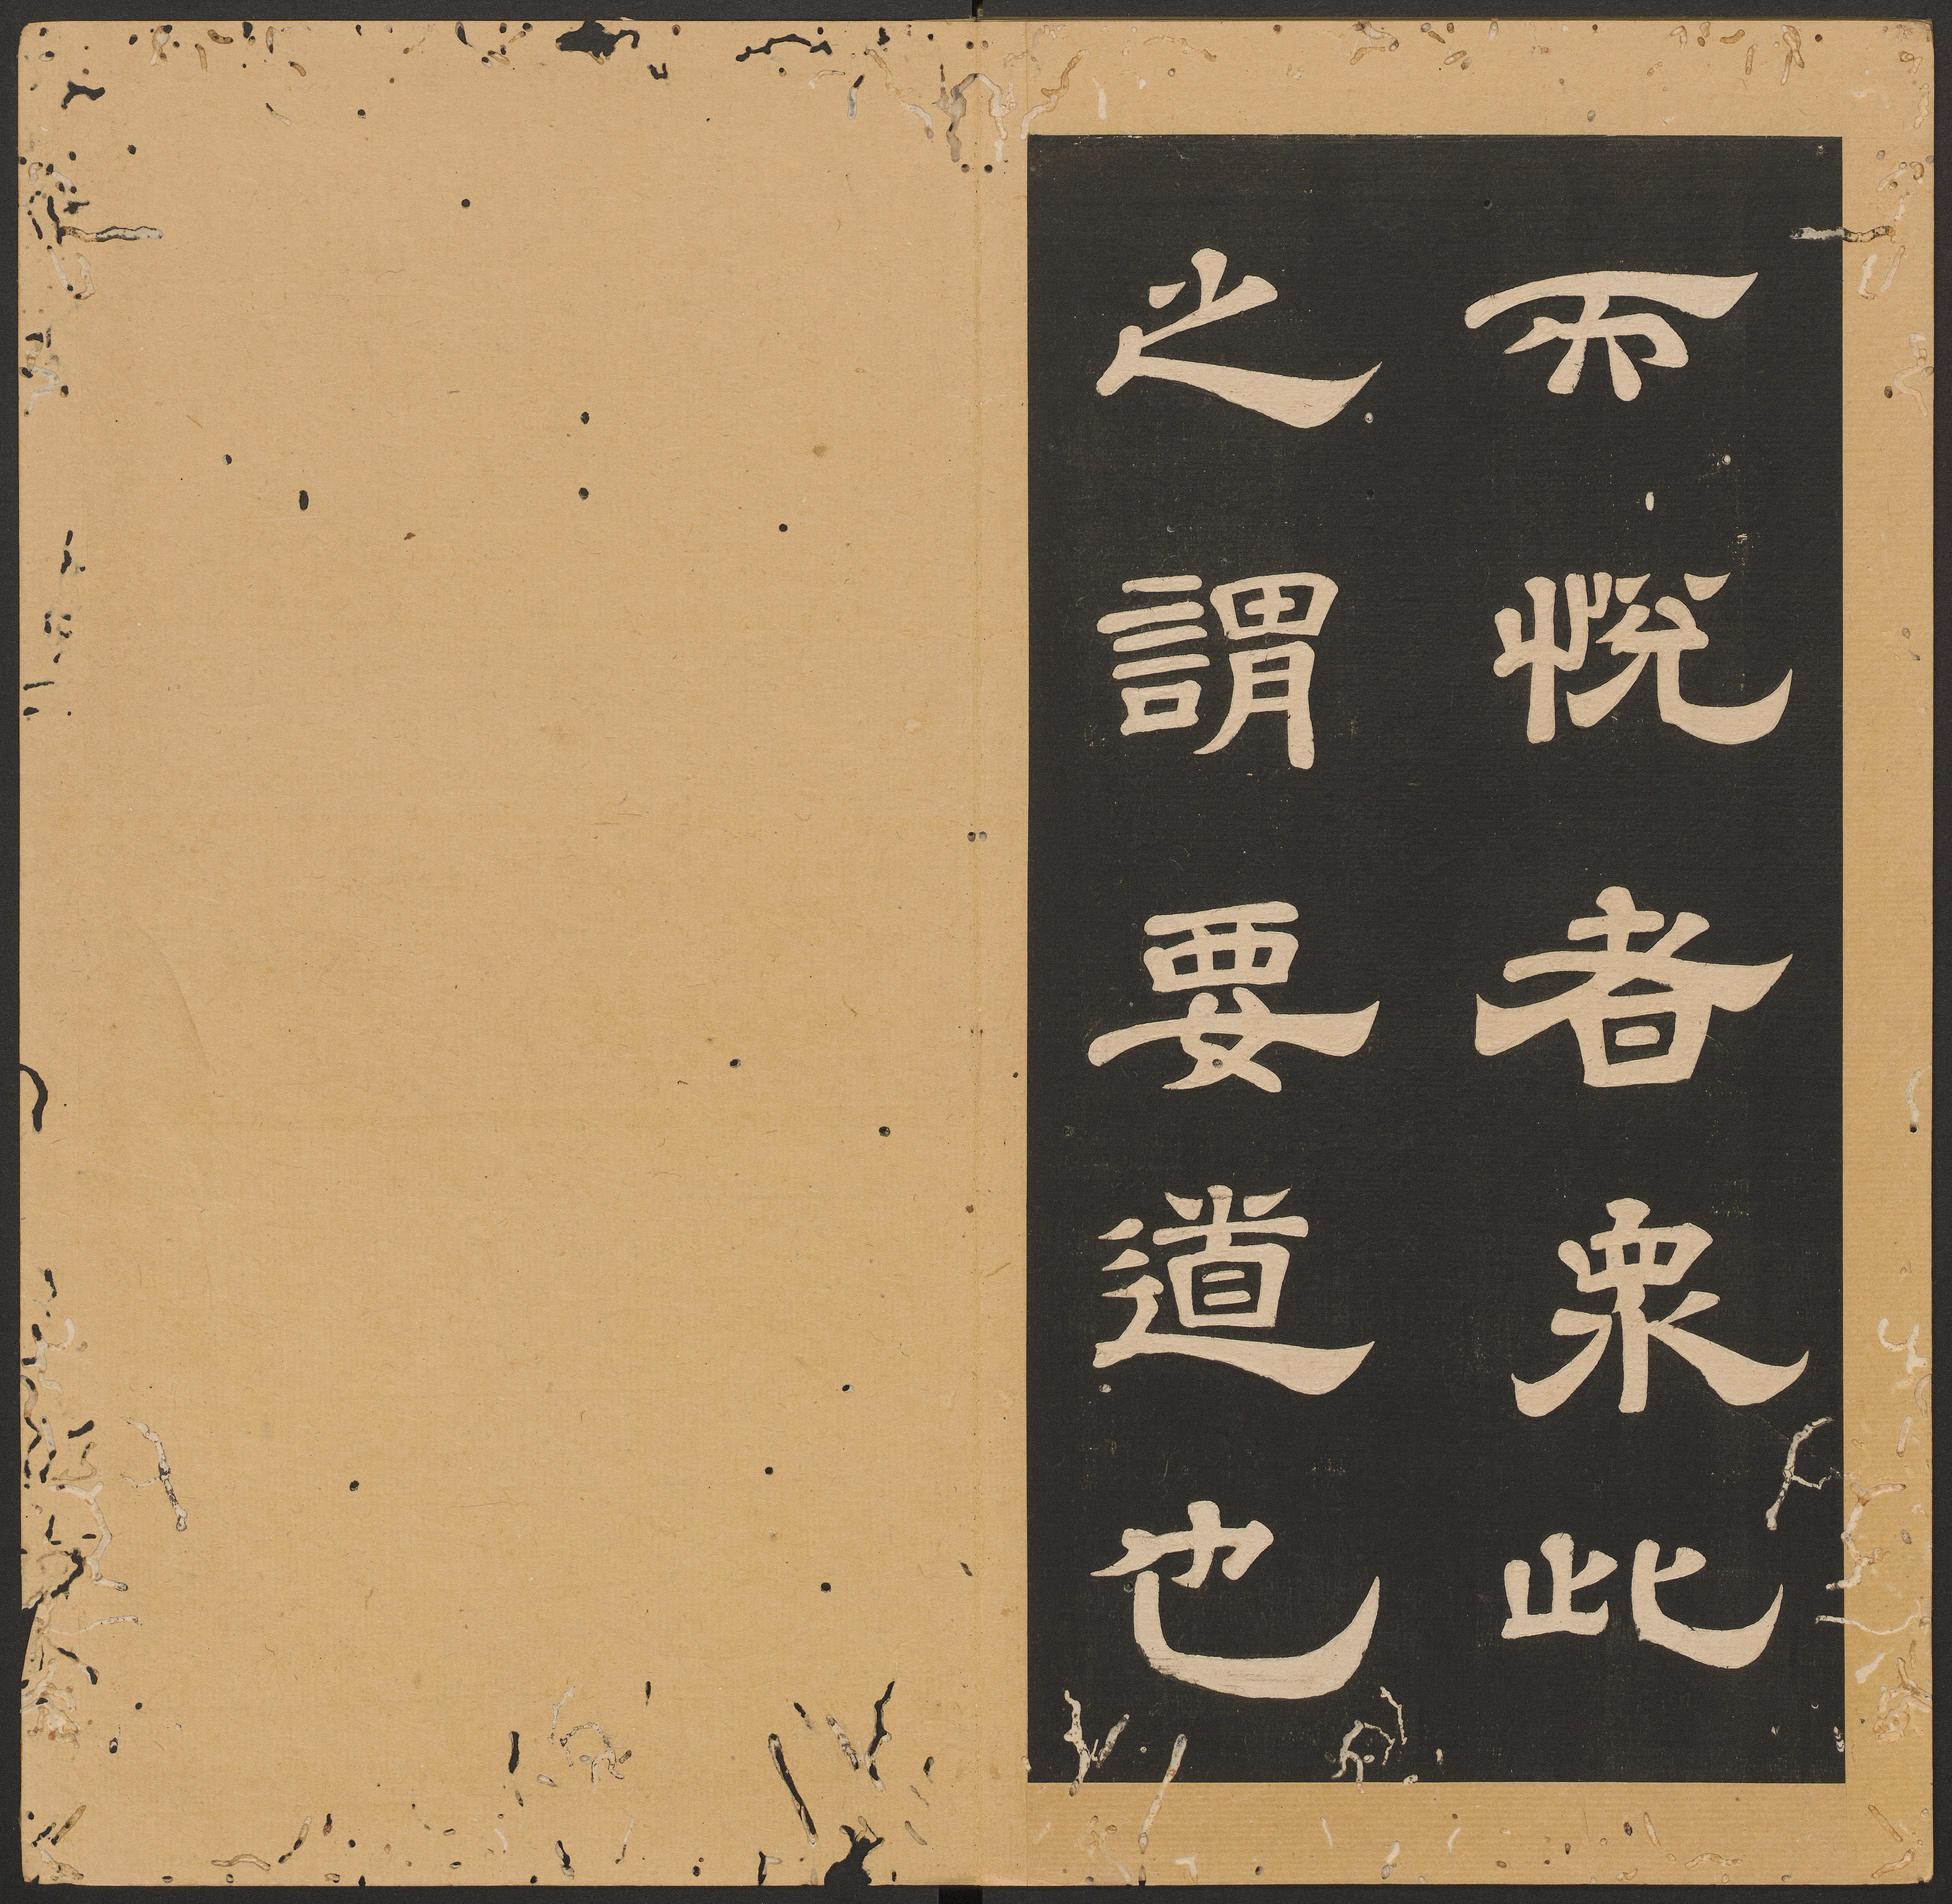 而悅者眾此
之謂要道也